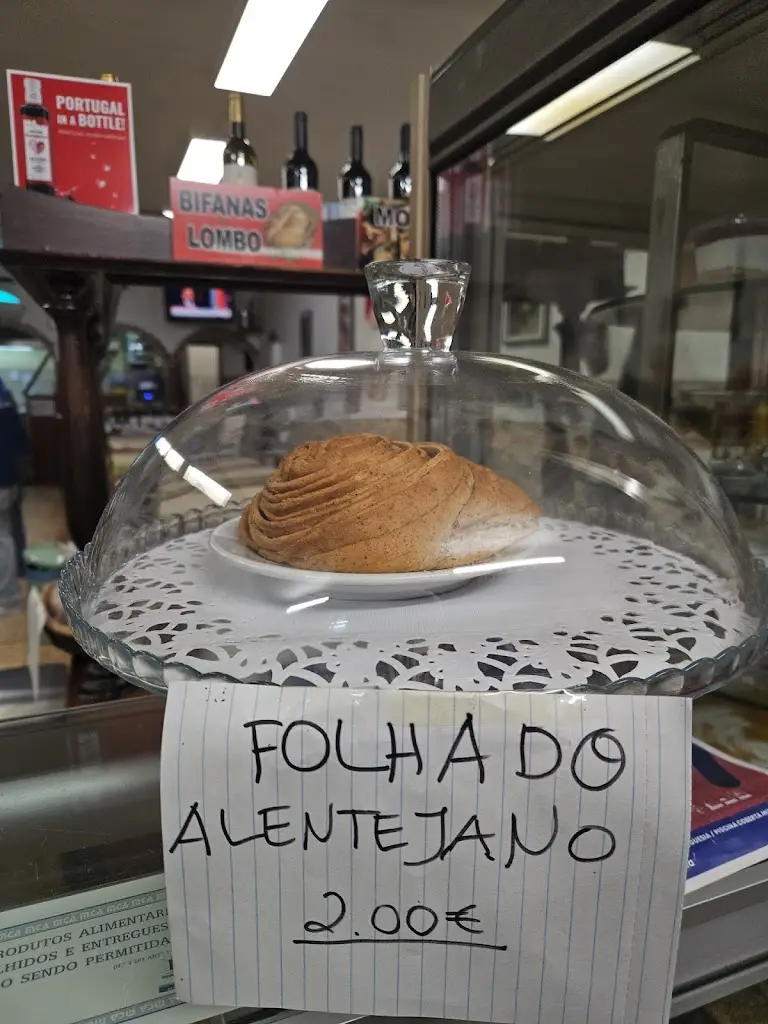 PORTUGAL
IN A BOTTLE!
BIFANAS
LOMBO
MO
FOLHADO
ALENTEJANO
2.00€
RODUTOS ALIMENTAR
LHIDOS E ENTREGUES
O SENDO PERMITIDA